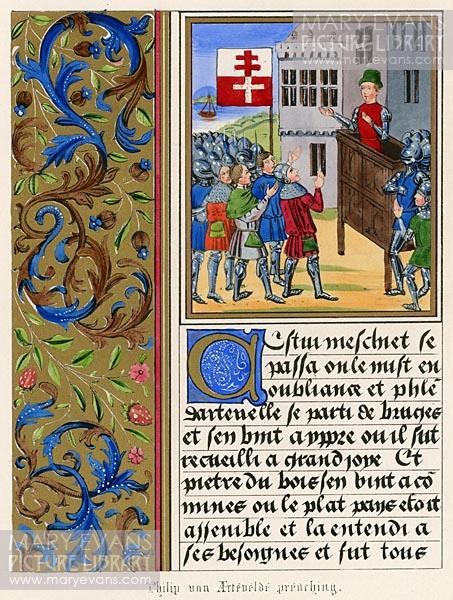 MARY EVANS
PICTURE LIBRARY
www.maryevans.com
Cestui meschiet se
passa on le mist en
oubliance et phlē
dartevelle se parti de bruges
et sen vint a yppre ou il fut
recueilli a grand joye Et
pietre du bois sen vint a cō
mines ou le plat pays etoit
assemble et la entendi a
ses besoignes et fut tous
MARY EVANS
PICTURE LIBRARY
www.maryevans.com
Philip van Artevelde preaching.